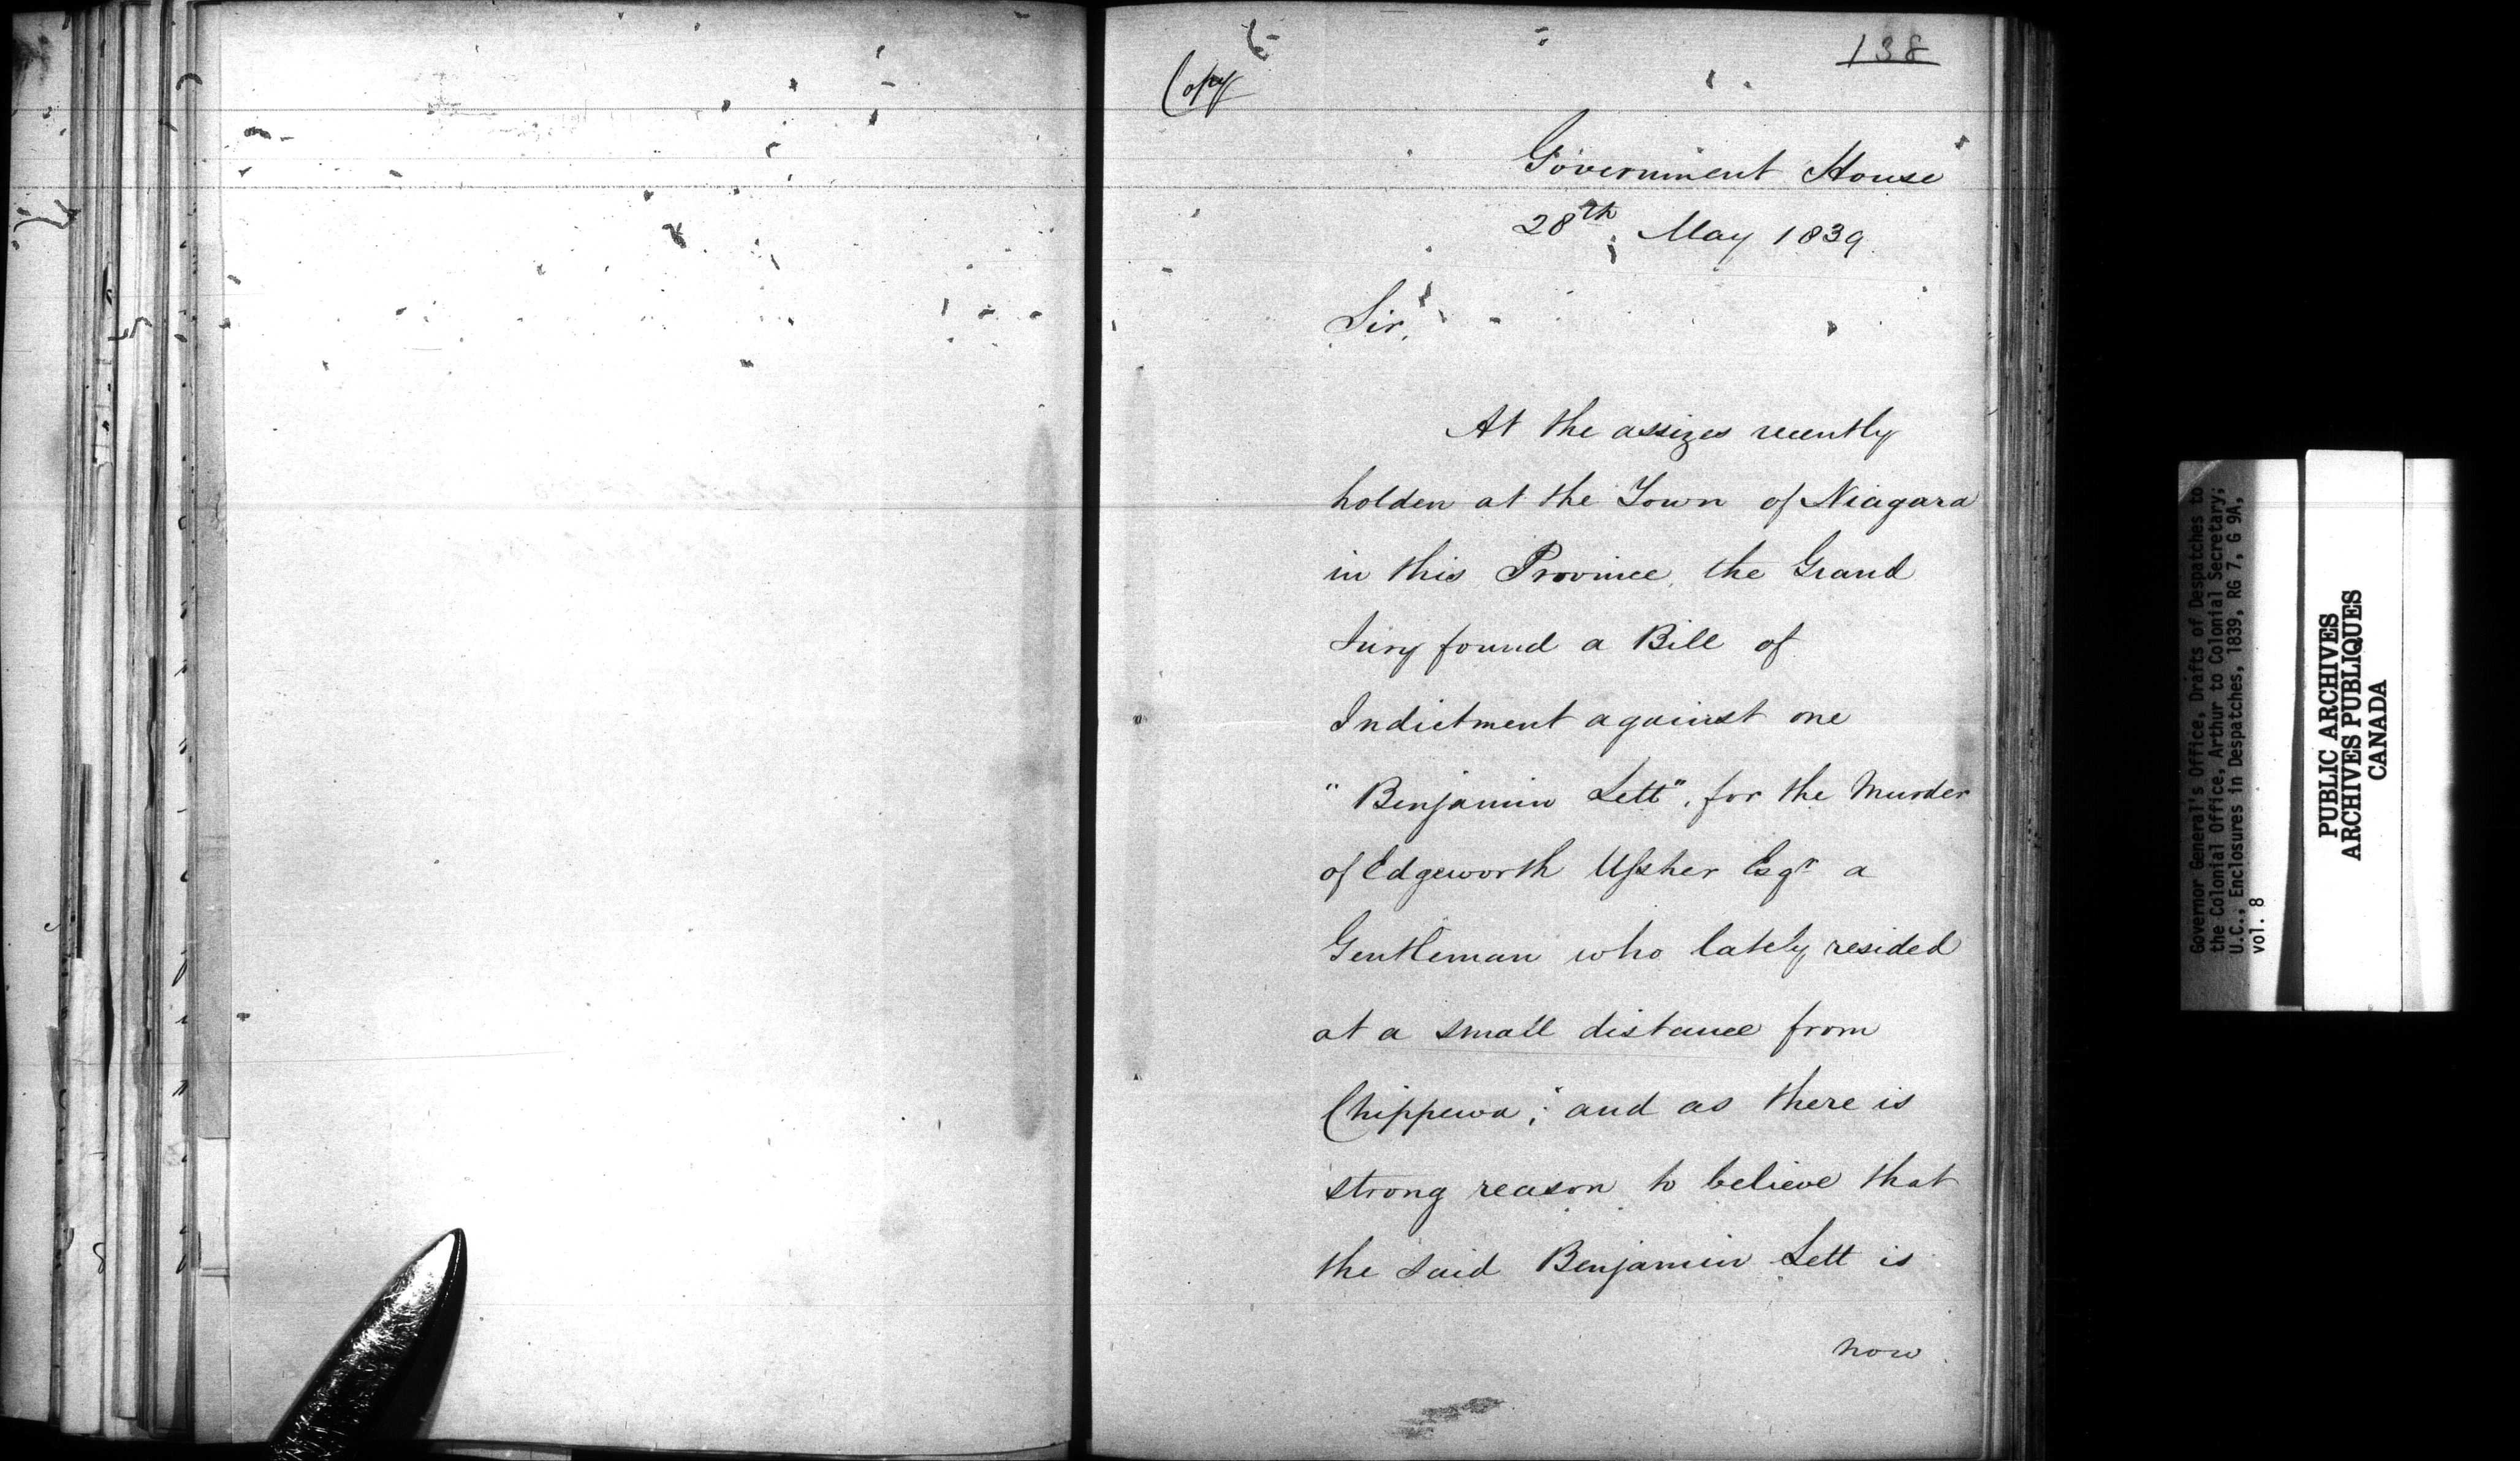 138
Copy
Government House
28th May 1839.
Sir,
At the assizes recently
holden at the Town of Niagara
in this Province, the Grand
Jury found a Bill of
Indictment against one
"Benjamin Lett", for the Murder
of Edgeworth Ussher Esqr a
Gentleman who lately resided
at a small distance from
Chippewa; and as there is
strong reason to believe that
the said Benjamin Lett is
now
Governor General's Office, Drafts of Despatches to
the Colonial Office, Arthur to Colonial Secretary;
U.C., Enclosures in Despatches, 1839, RG 7, G 9A,
vol. 8
PUBLIC ARCHIVES
ARCHIVES PUBLIQUES
CANADA